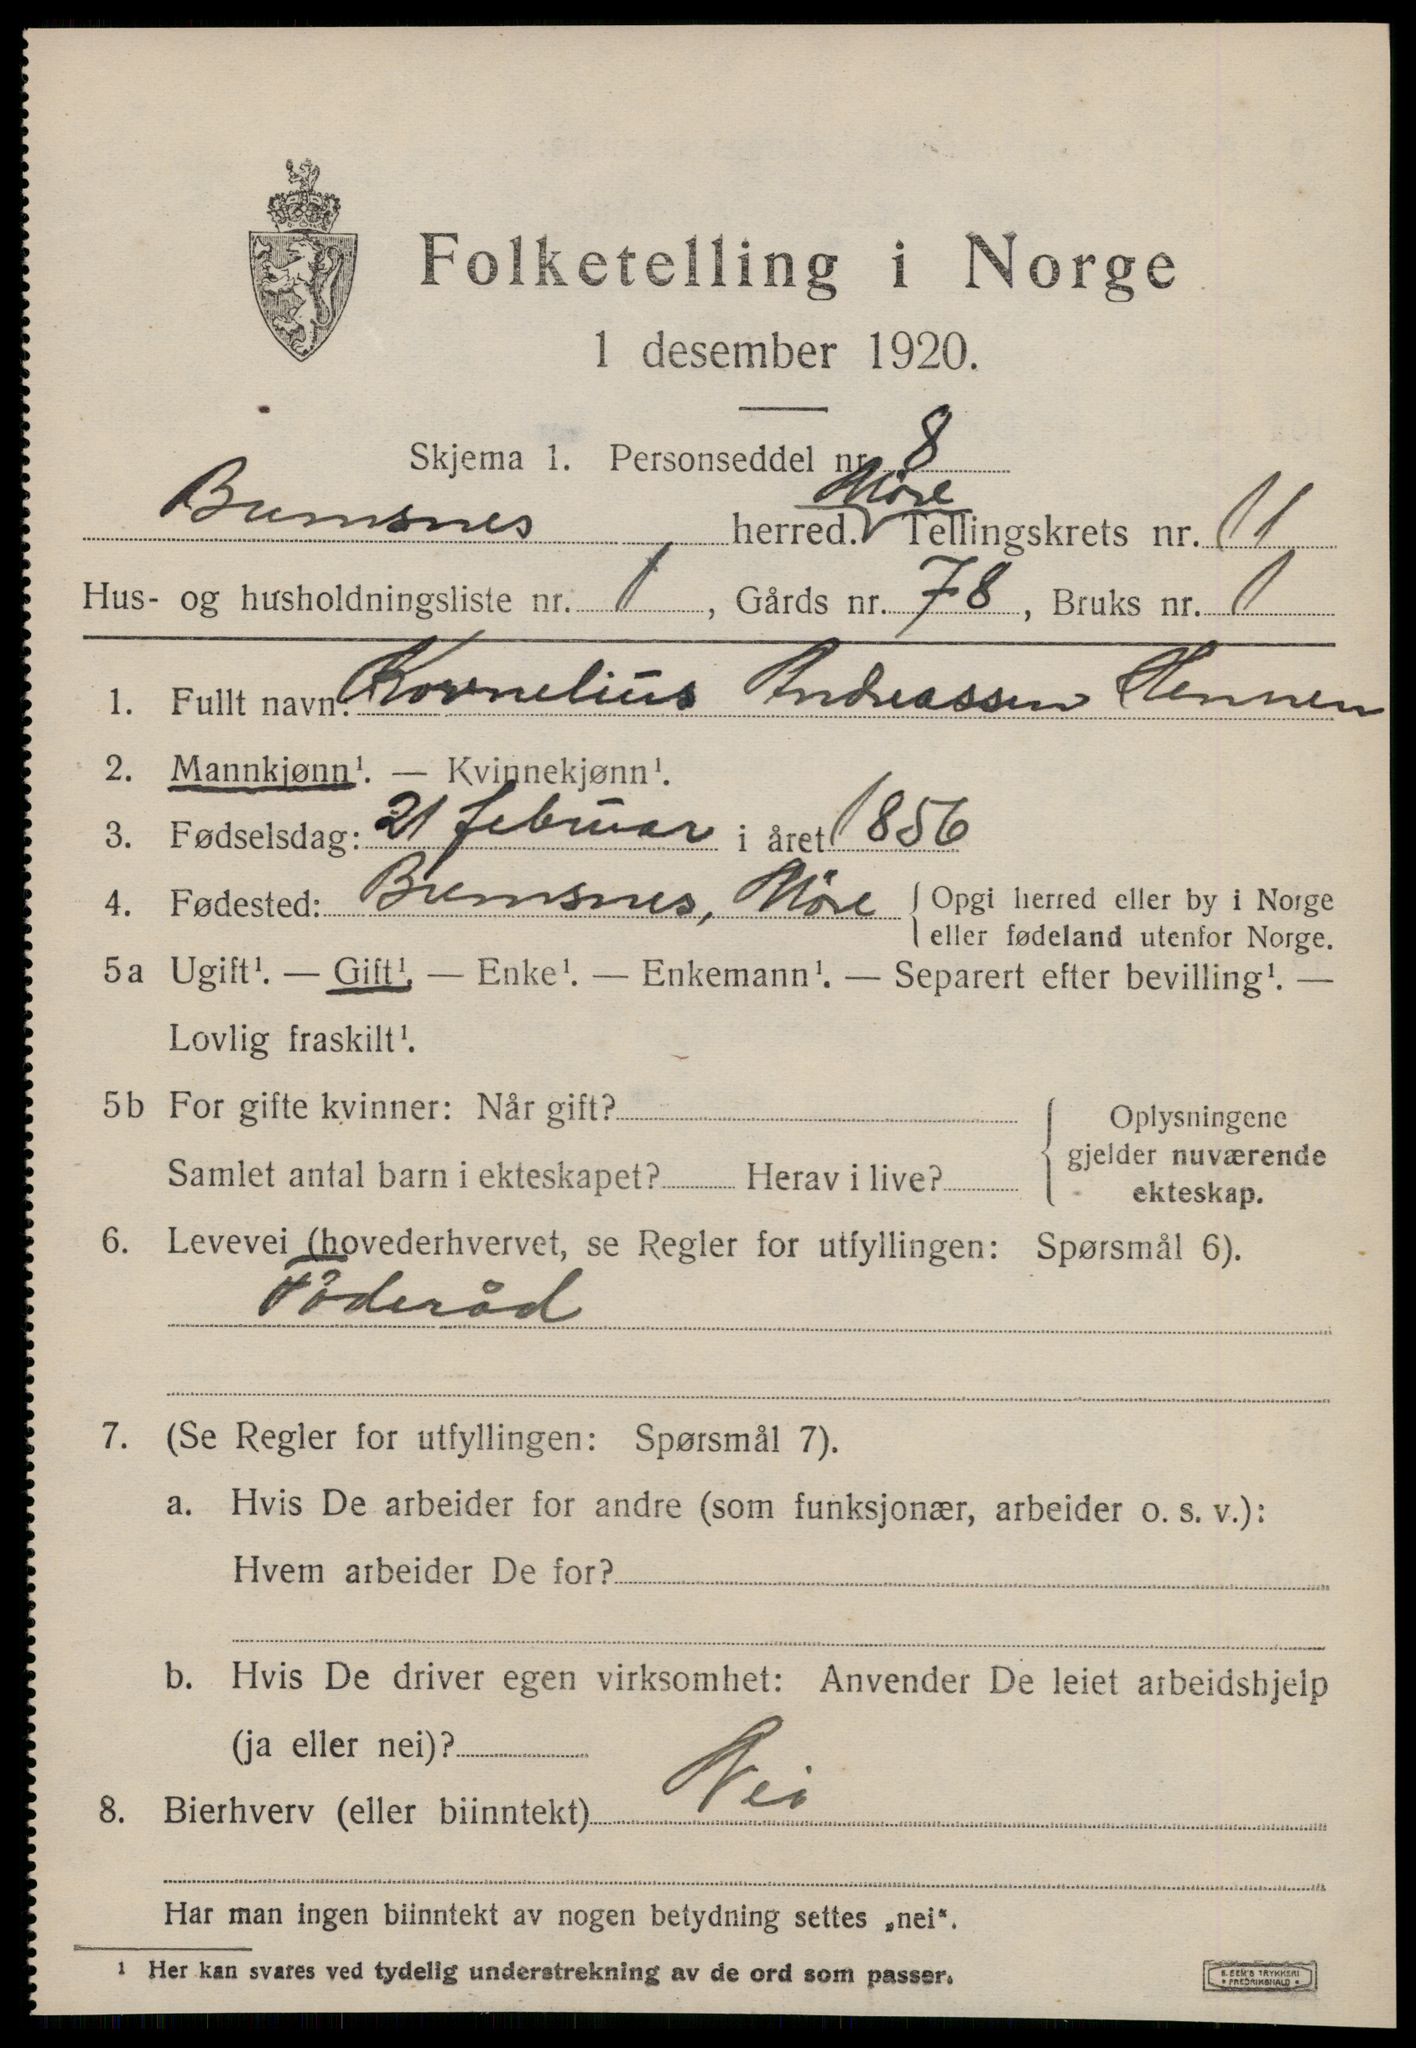 Folketelling i Norge
1 desember 1920.
Skjema 1. Personseddel nr. 8
Bremsnes herred. Möre Tellingskrets nr. 11
Hus- og husholdningsliste nr. 1, Gårds nr. 78, Bruks nr. 1
1. Fullt navn: Kornelius Andreassen Hennen
2. Mannkjønn¹. — Kvinnekjønn¹.
3. Fødselsdag: 21 februar i året 1856
4. Fødested: Bremsnes, Möre { Opgi herred eller by i Norge
eller fødeland utenfor Norge.
5a Ugift¹. — Gift¹. — Enke¹. — Enkemann¹. — Separert efter bevilling¹. —
Lovlig fraskilt¹.
5b For gifte kvinner: Når gift?
Samlet antal barn i ekteskapet? Herav i live?
Oplysningene
gjelder nuværende
ekteskap.
6. Levevei (hovederhvervet, se Regler for utfyllingen: Spørsmål 6).
Föderåd
7. (Se Regler for utfyllingen: Spørsmål 7).
a. Hvis De arbeider for andre (som funksjonær, arbeider o. s. v.):
Hvem arbeider De for?
b. Hvis De driver egen virksomhet: Anvender De leiet arbeidshjelp
(ja eller nei)?
8. Bierhverv (eller biinntekt) Nei
Har man ingen biinntekt av nogen betydning settes „nei“.
¹ Her kan svares ved tydelig understrekning av de ord som passer.
E. SEM'S TRYKKERI
• FREDRIKSHALD •